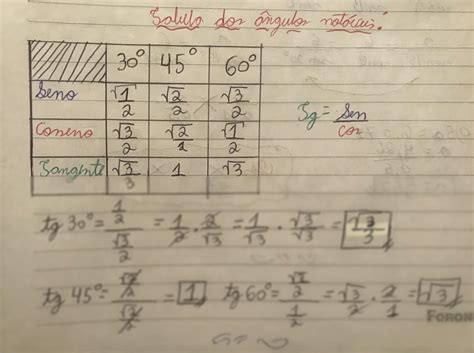 Tabela dos ângulos notáveis:
30° 45° 60°
Seno √1/2 √2/2 √3/2
Cosseno √3/2 √2/2 √1/2
Tangente √3/3 1 √3
Tg = Sen/Cos
tg 30° = (1/2)/(√3/2) = 1/2 . 2/√3 = 1/√3 . √3/√3 = √3/3
tg 45° = (√2/2)/(√2/2) = 1 tg 60° = (√3/2)/(1/2) = √3/2 . 2/1 = √3
FORON